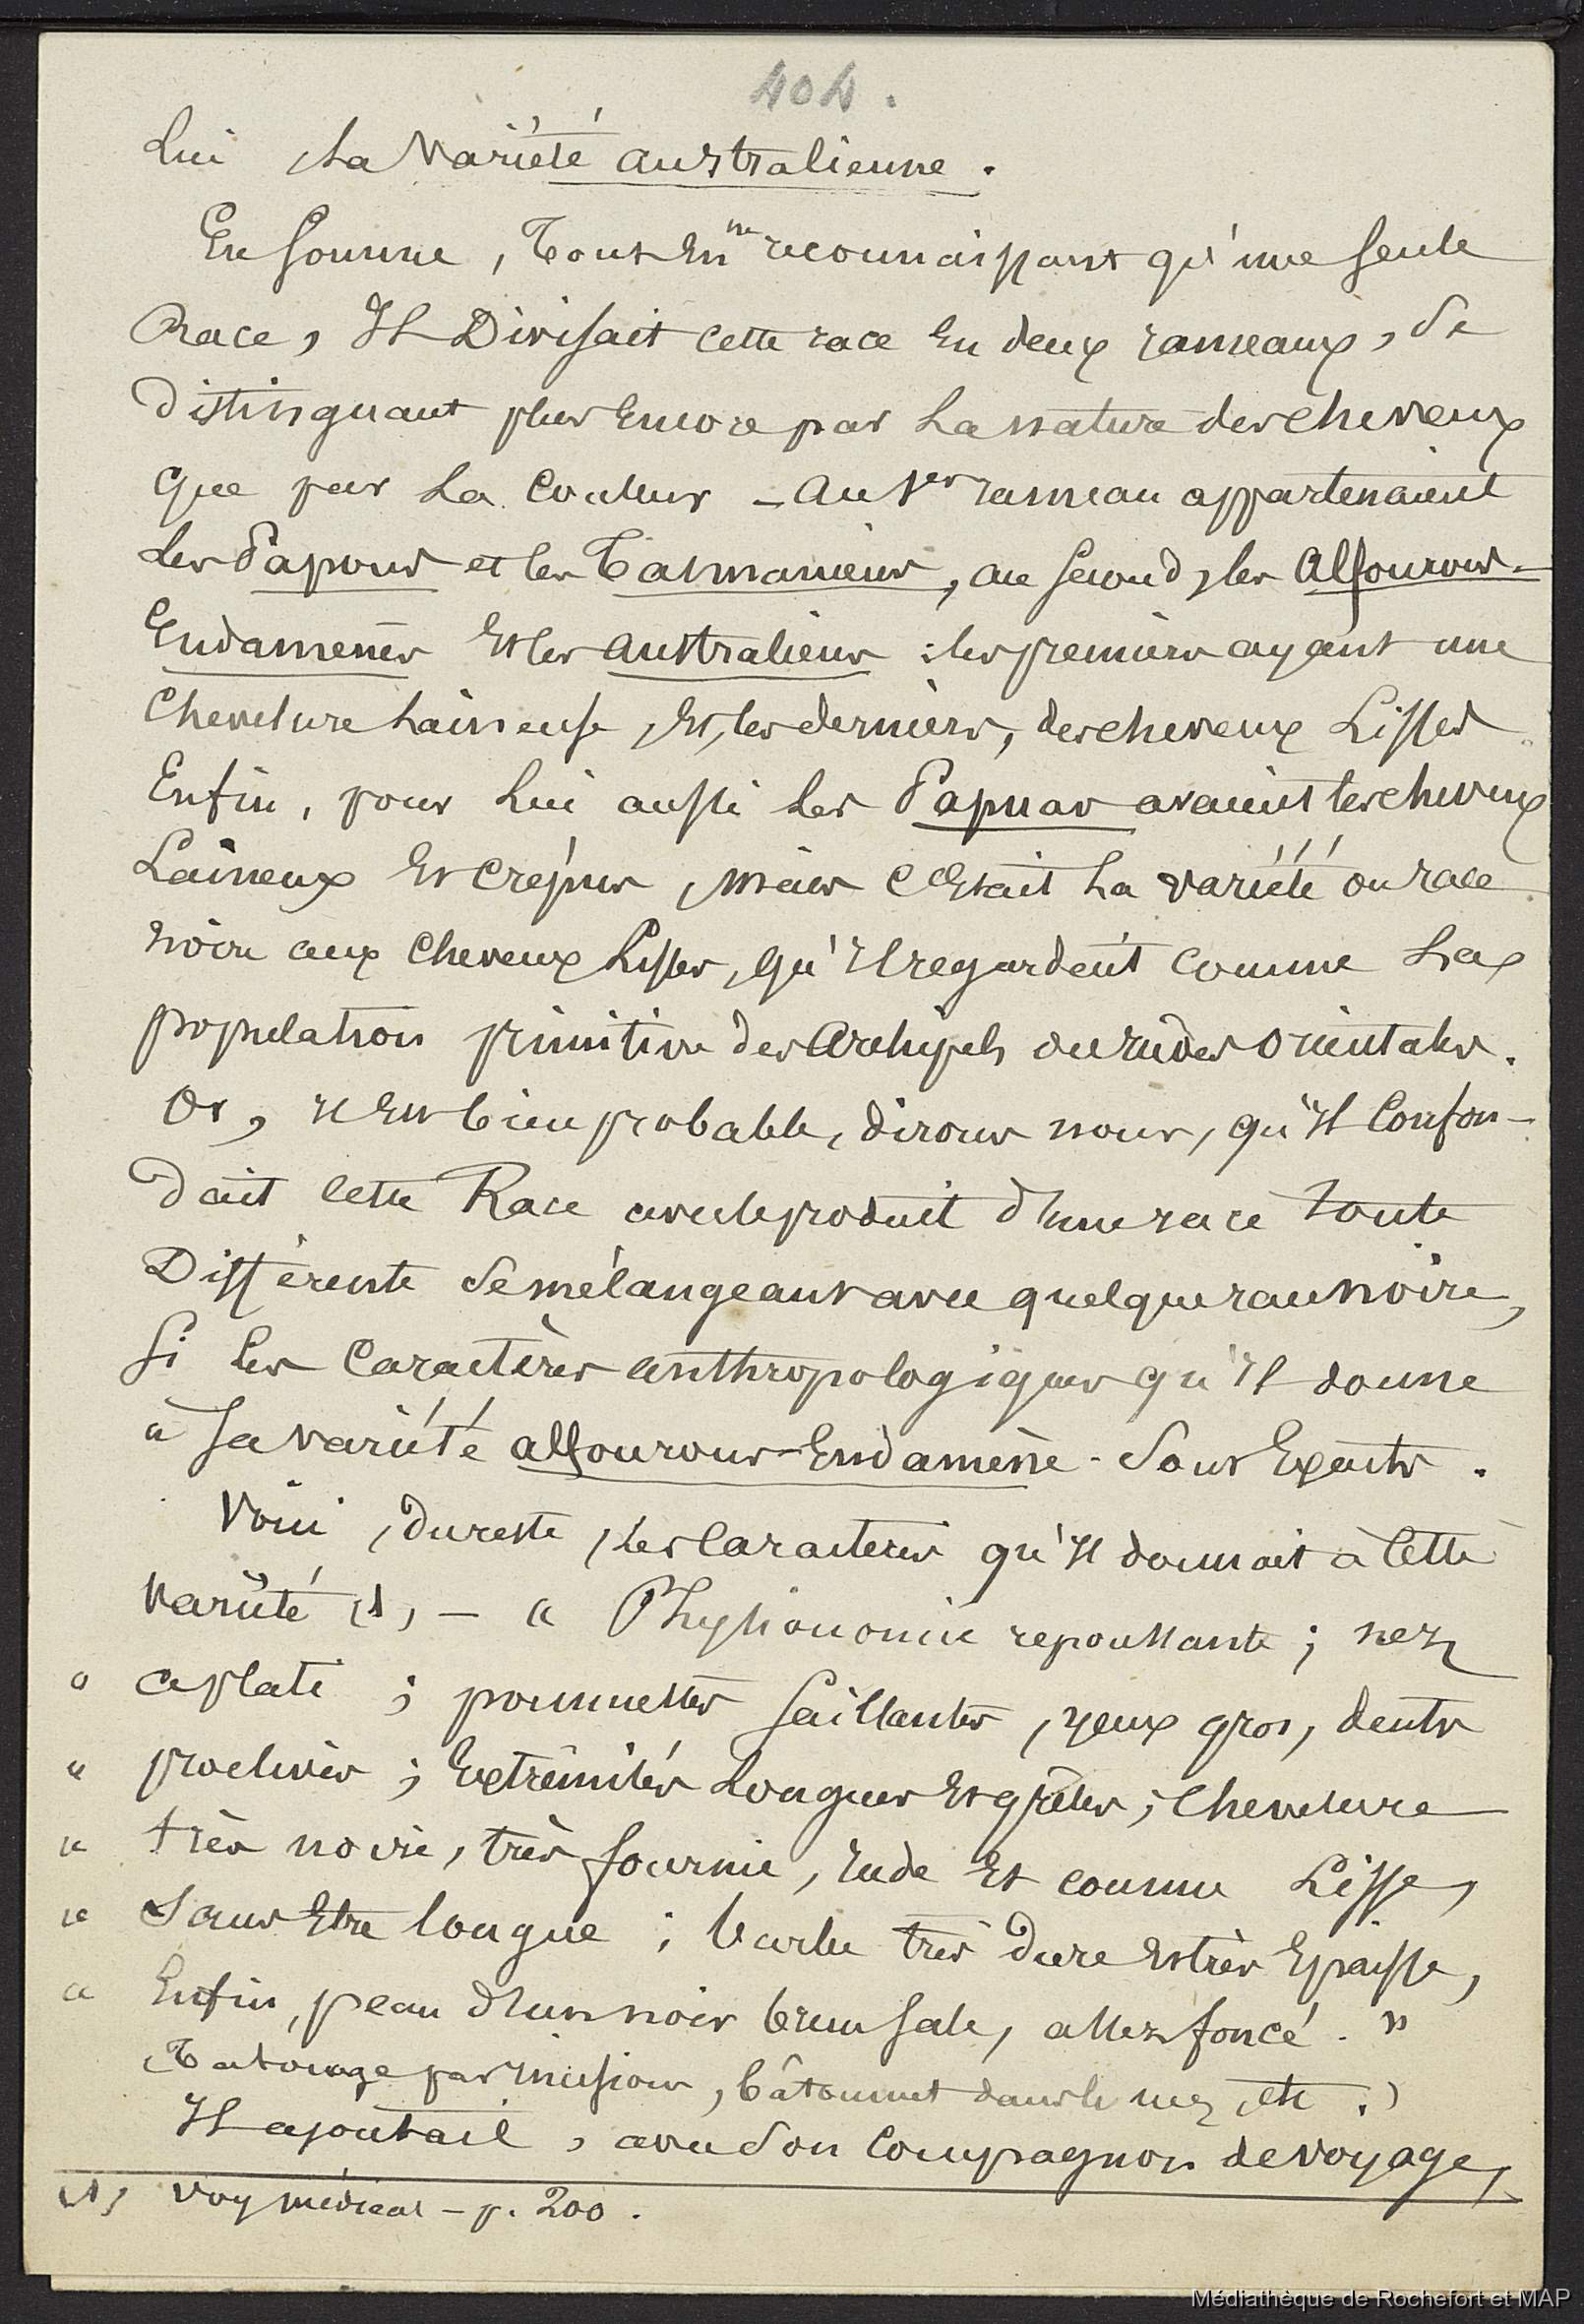 404.
Lui, la variété australienne.
En somme, tout en ne reconnaissant qu'une seule
Race, Il Divisait cette race en deux rameaux, se
distinguant plus encore par la nature des cheveux
que par la couleur – au 1er rameau appartenaient
les Papous et les Tasmaniens, au second, les Alfourous-
Endamènes et les australiens : les premiers ayant une
Chevelure laineuse, et, les derniers, des cheveux Lisses.
Enfin, pour lui aussi les Papuas avaient les cheveux
Laineux et crépus, mais c'était la variété ou race
noire aux cheveux lisses, qu'il regardait comme la
population primitive des Archipels des Indes orientales.
Or, il est bien probable, dirons nous, qu'il Confon-
dait cette Race avec le produit d'une race toute
Différente se mélangeant avec quelque race noire,
si les caractères anthropologiques qu'il donne
à sa variété alfourous-Endamène - sont Exacts.
Voici, du reste, les caractères qu'il donnait à cette
variété (1) – « Physionomie repoussante ; nez
« aplati ; pommettes saillantes, yeux gros, dents
« proclives ; Extrémités longues et grêles ; chevelure
« très noire, très fournie, rude et comme Lisse,
« sans être longue ; barbe très dure et très Epaisse,
« Enfin, peau d'un noir brun sale, assez foncé. »
(Tatouage par incisions, bâtonnet dans le nez, etc.)
Il ajoutait, avec son compagnon de voyage,
(1) Voy médical – p. 200.
Médiathèque de Rochefort et MAP